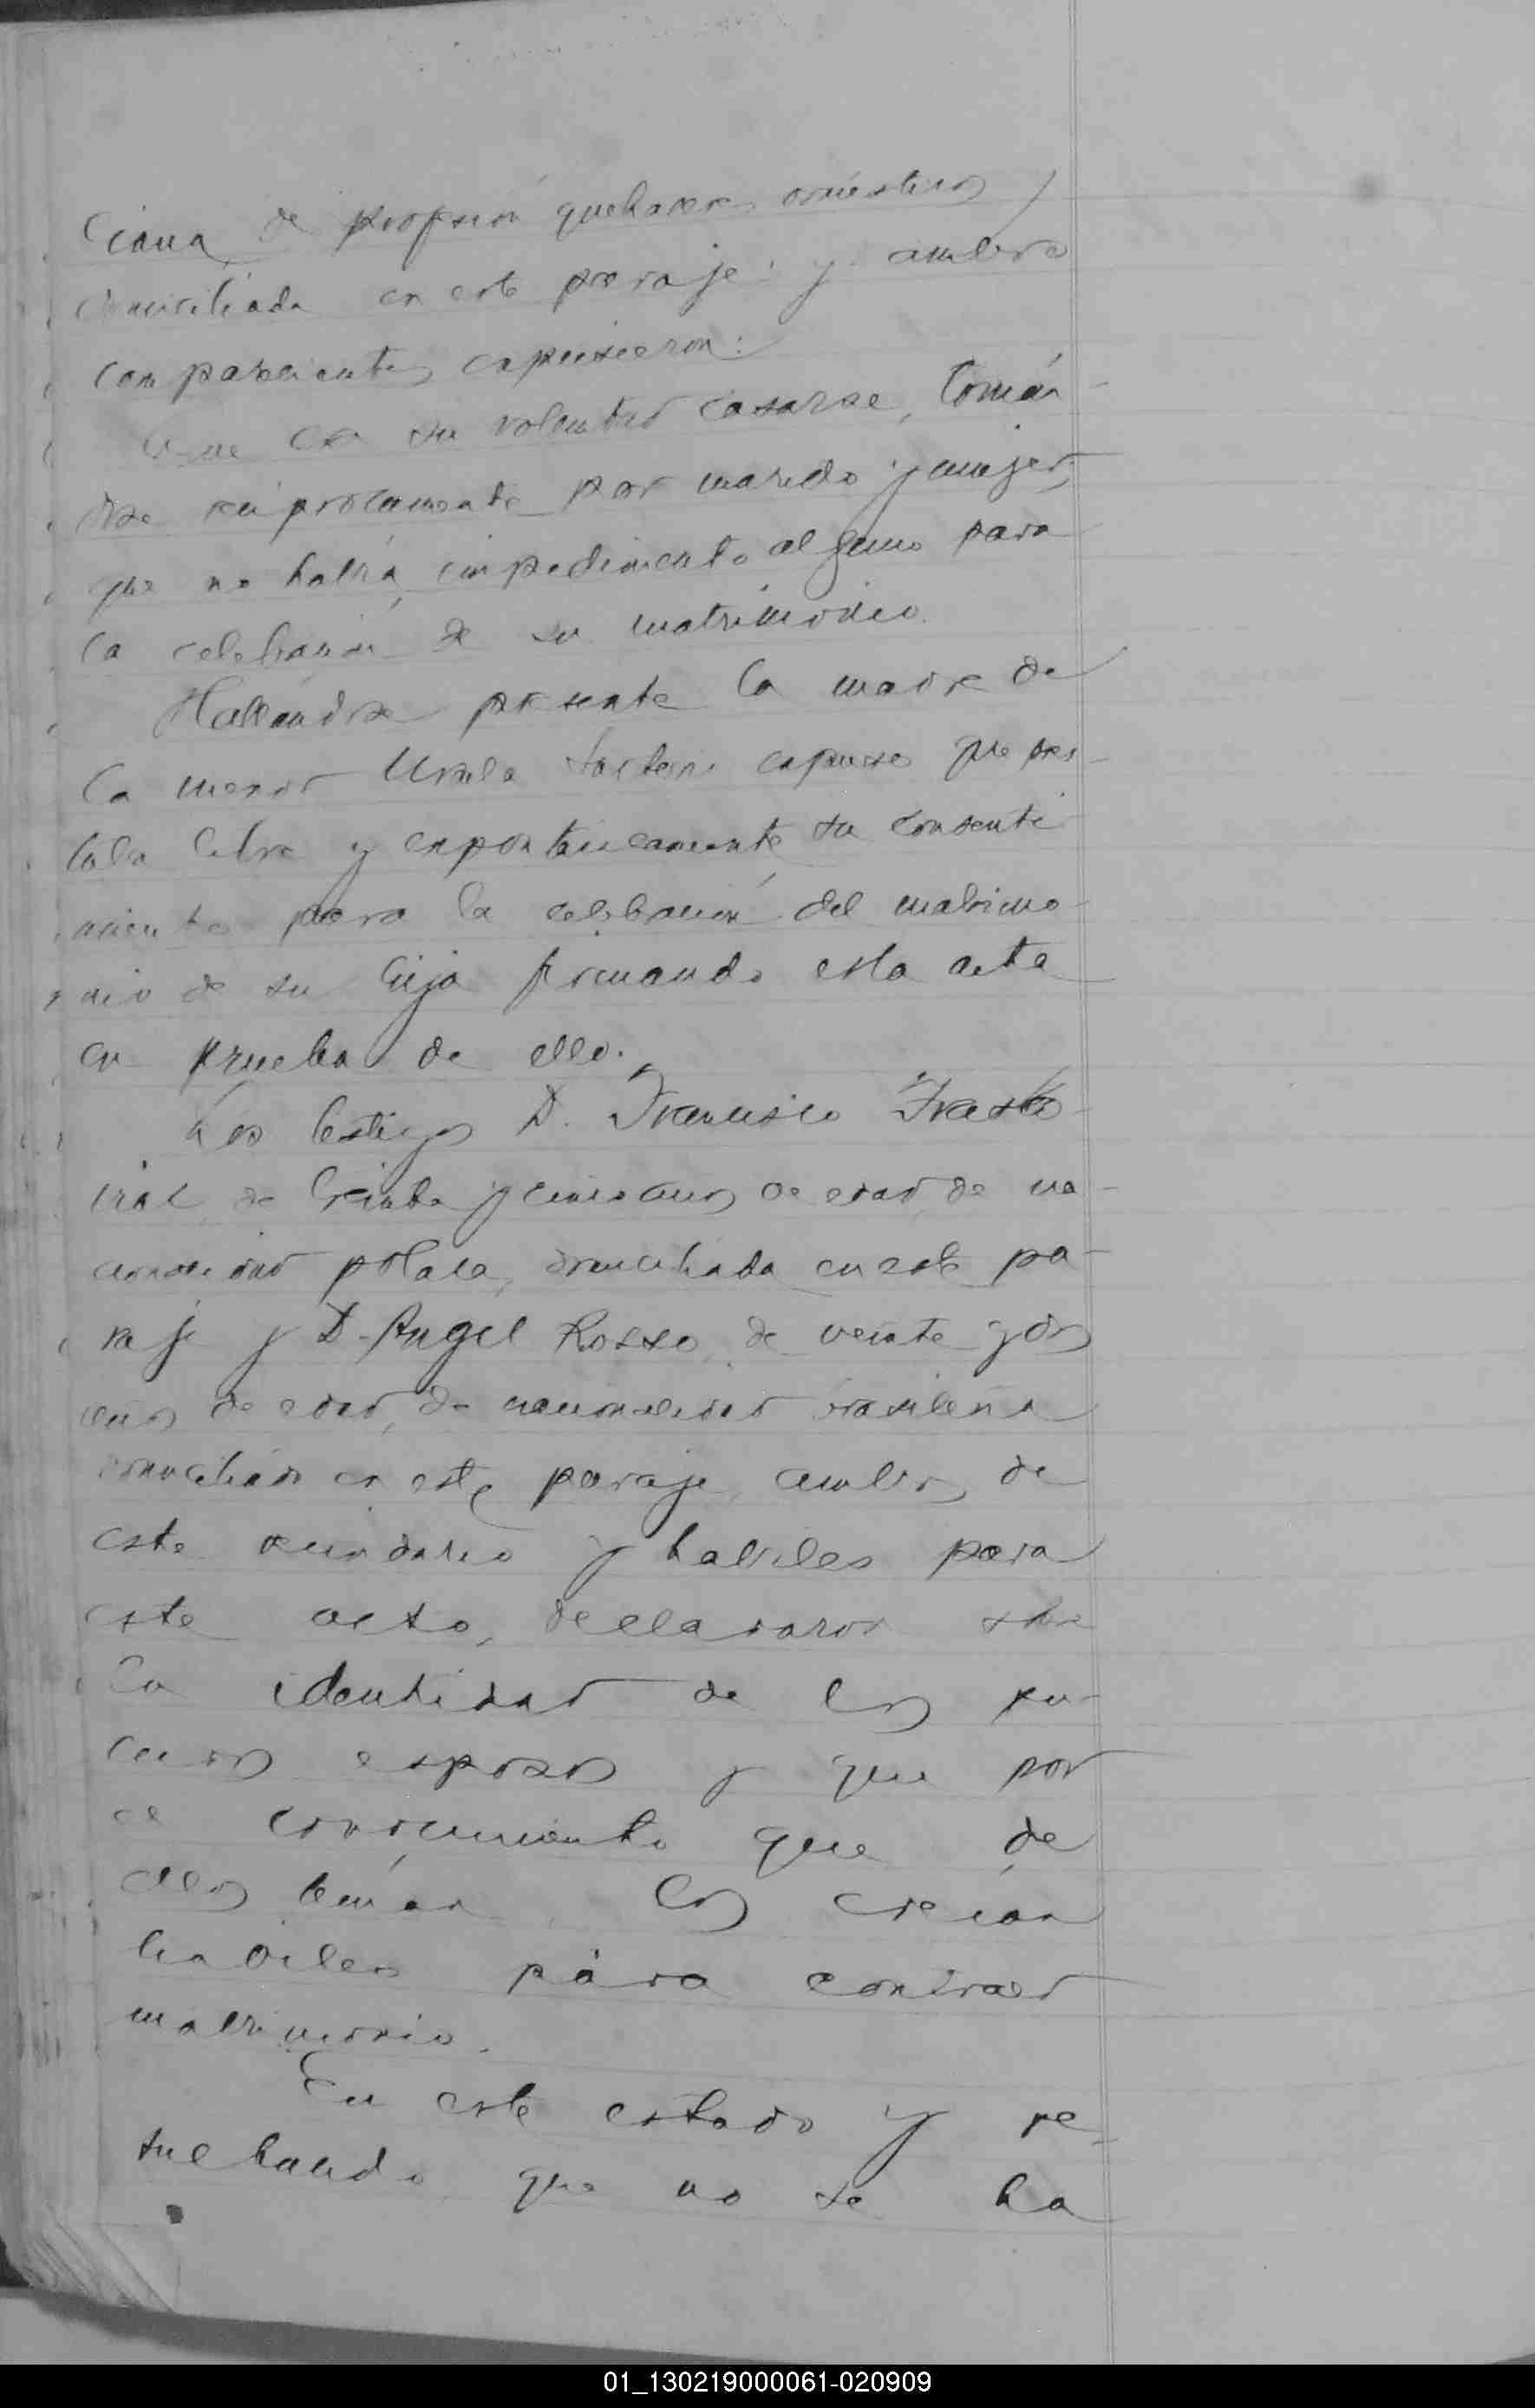 ciana, de profesión quehaceres domésticos
domiciliada en este paraje; y ambos
comparecientes expusieron:
Que era su voluntad casarse, tomán-
dose recíprocamente por marido y mujer,
que no había impedimento alguno para
la celebración de su matrimonio.
Hallándose presente la madre de
la menor Ursula expuso que pres-
taba libre y expontáneamente su consenti-
miento para la celebración del matrimo-
nio de su hija firmando esta acta
en prueba de ello.
Los testigos D. Francisco
de treinta y cinco años de edad, de na-
cionalidad polaca, domiciliado en este pa-
raje y D. Angel Rosso, de veinte y dos
años de edad, de nacionalidad brasileña
domiciliado en este paraje, ambos de
este vecindario y habiles para
este acto, declararon sobre
la identidad de los fu-
turos esposos y que por
el conocimiento que de
ellos tenían los creían
habiles para contraer
matrimonio.
En este estado y re-
sultando que no se ha
01_130219000061-020909